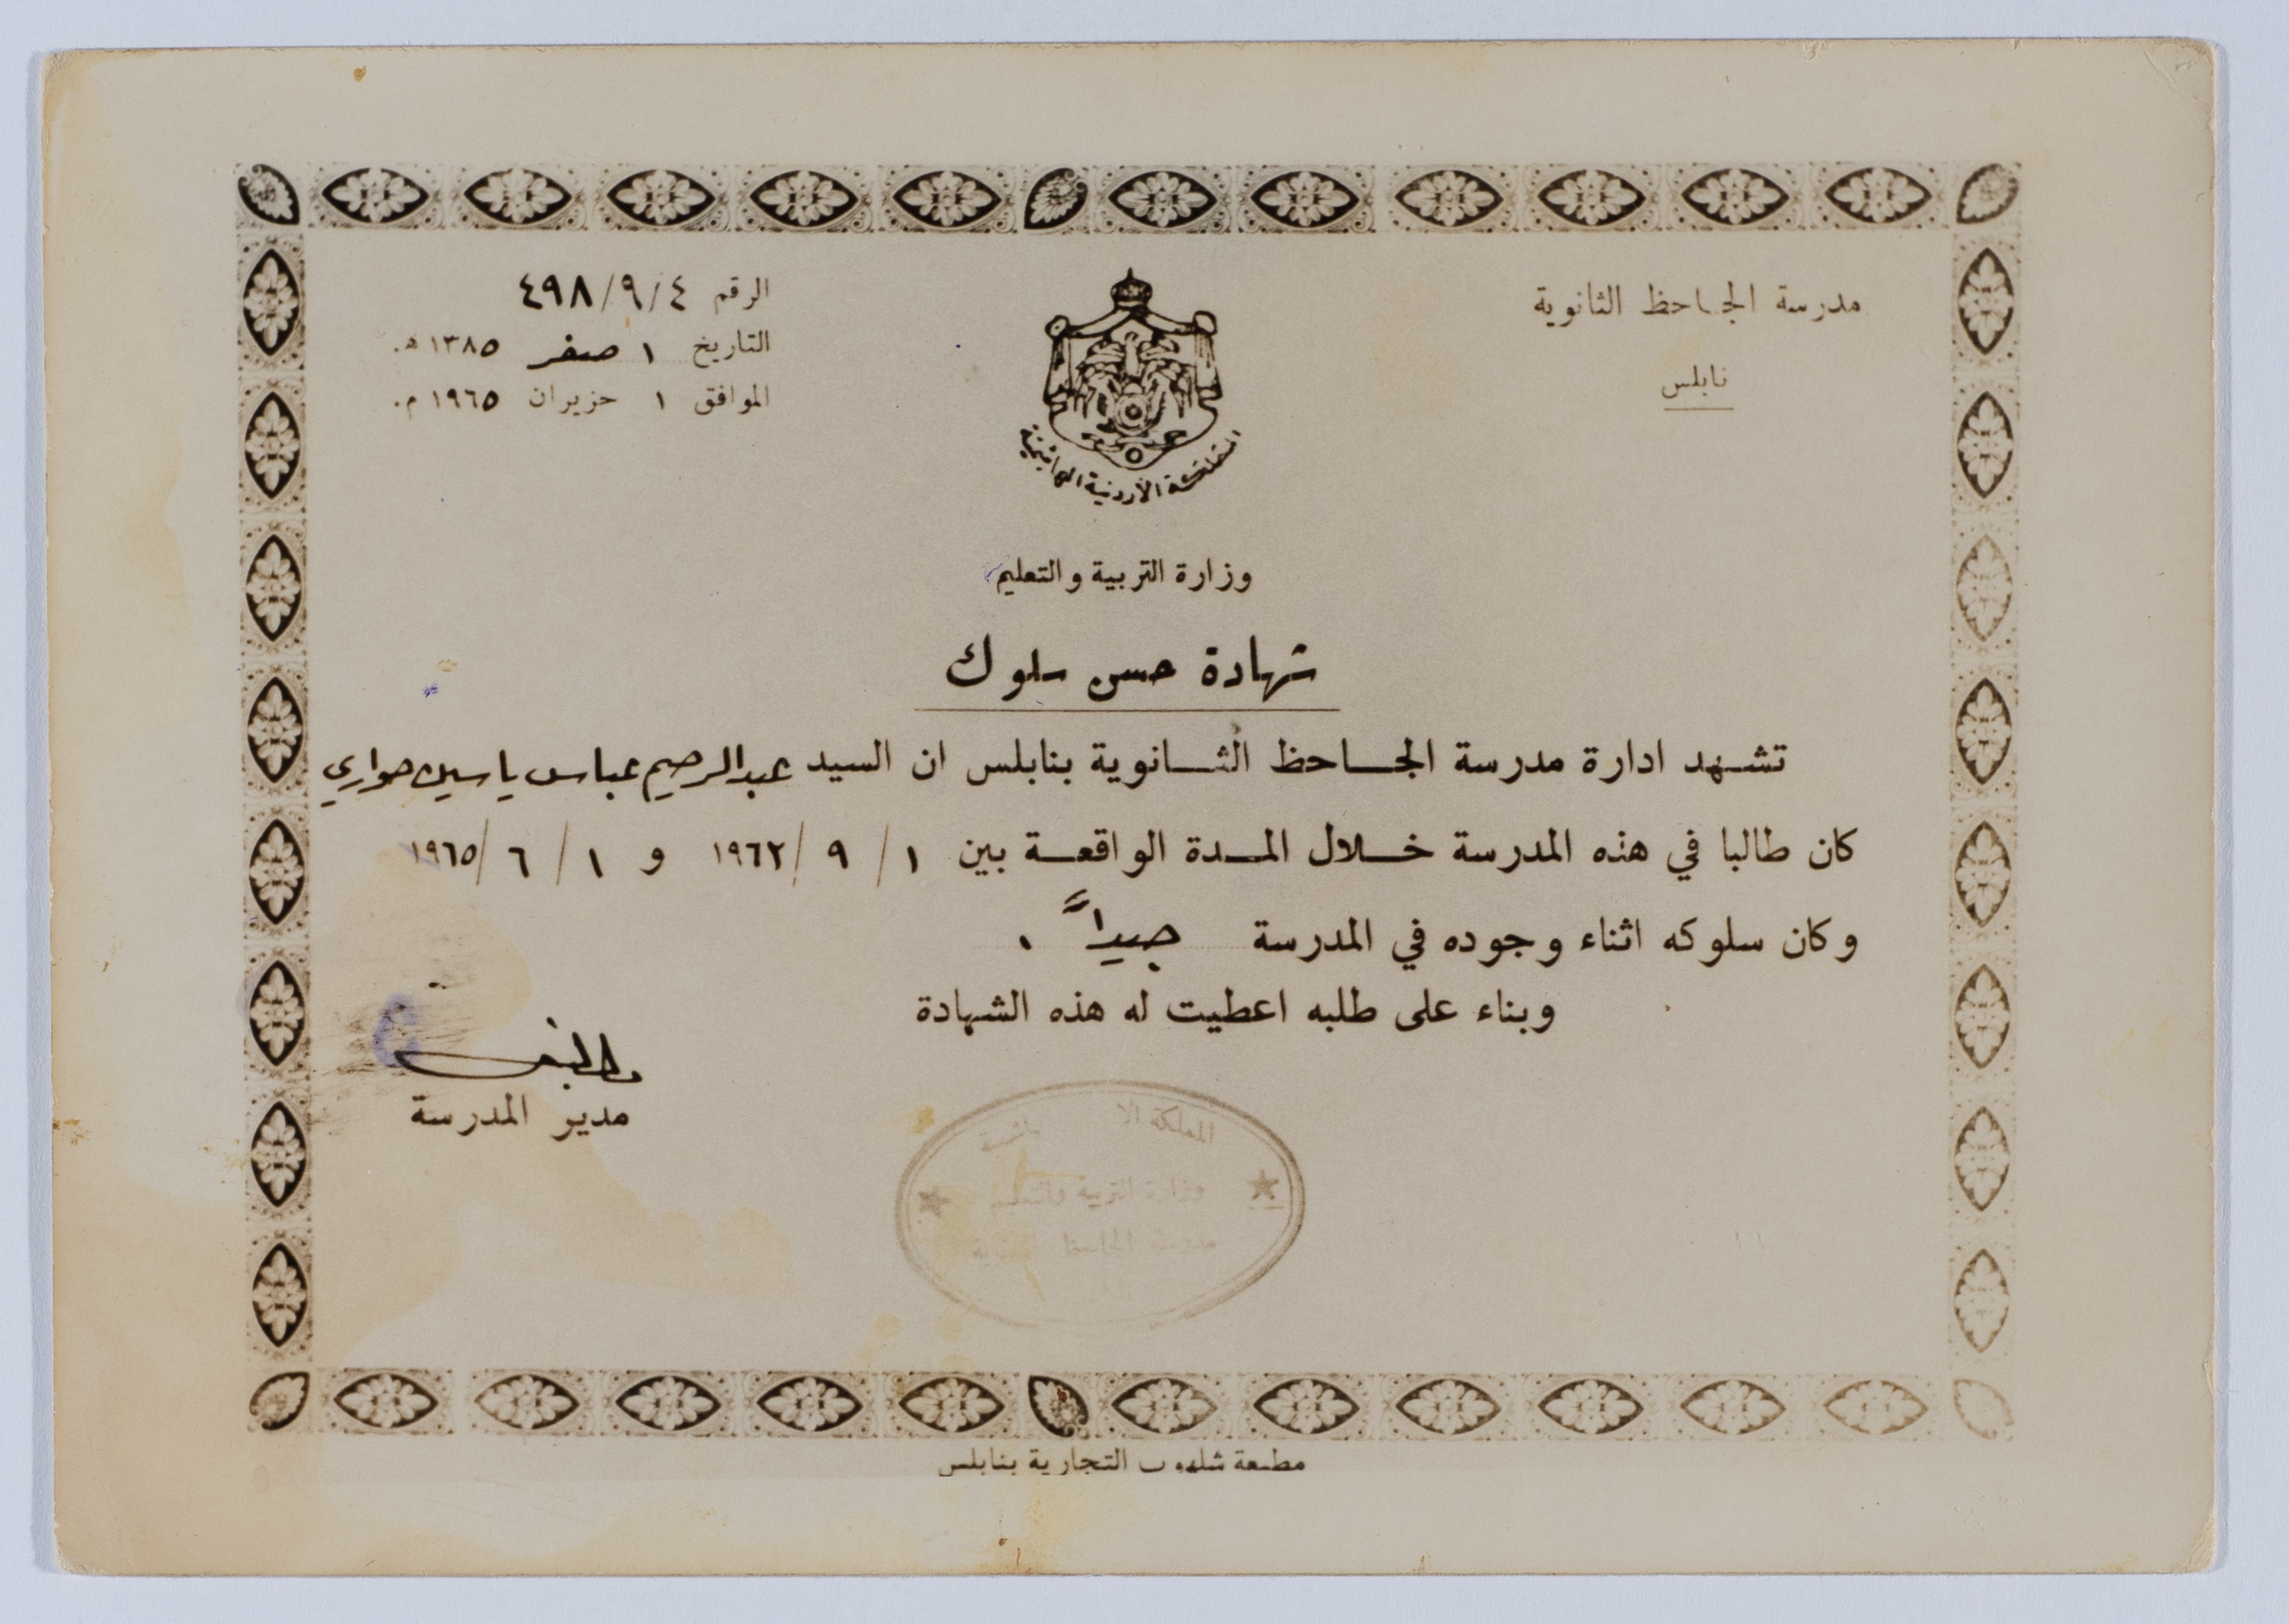 مدرسة الجاحظ الثانوية
نابلس
الرقم ٤/٩/٤٩٨
التاريخ ١ صفر ١٣٨٥ هـ.
الموافق ١ حزيران ١٩٦٥ م.
المملكة الأردنية الهاشمية
وزارة التربية والتعليم
شهادة حسن سلوك
تشهد ادارة مدرسة الجاحظ الثانوية بنابلس ان السيد عبدالرحيم عباس ياسين حواري
كان طالبا في هذه المدرسة خلال المدة الواقعة بين ١ / ٩ / ١٩٦٢ و ١ / ٦ / ١٩٦٥
وكان سلوكه اثناء وجوده في المدرسة جيداً .
وبناء على طلبه اعطيت له هذه الشهادة
مدير المدرسة
المملكة
وزارة التربية والتعليم
مدرسة الجاحظ
مطبعة شلهوب التجارية بنابلس